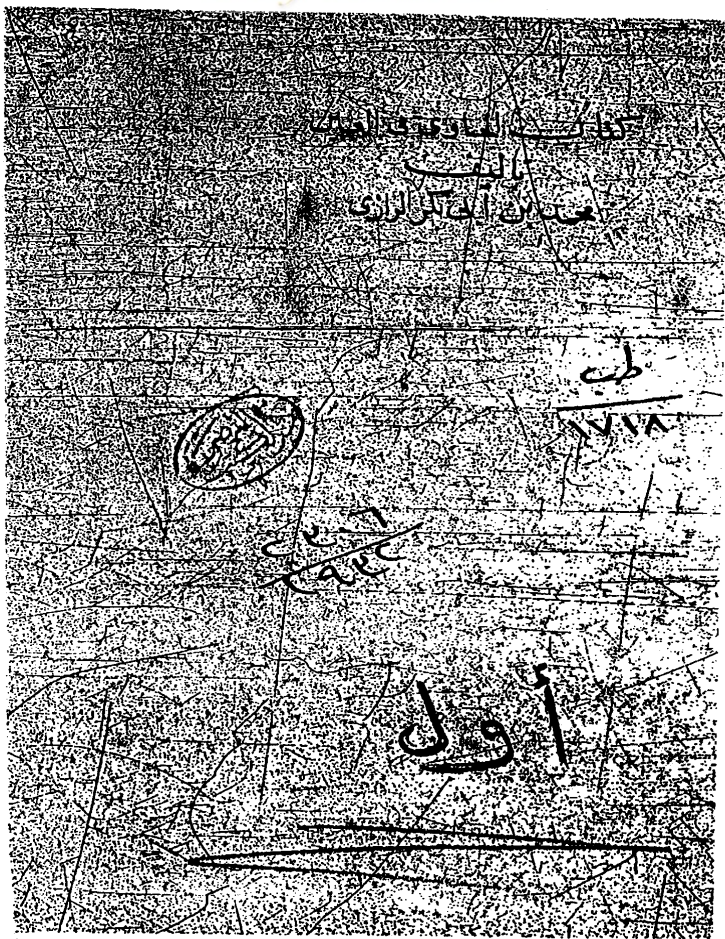 كتاب الحاوي في الطب
تاليف
محمد بن ابي بكر الرازي
طب
١٧١٨
أول